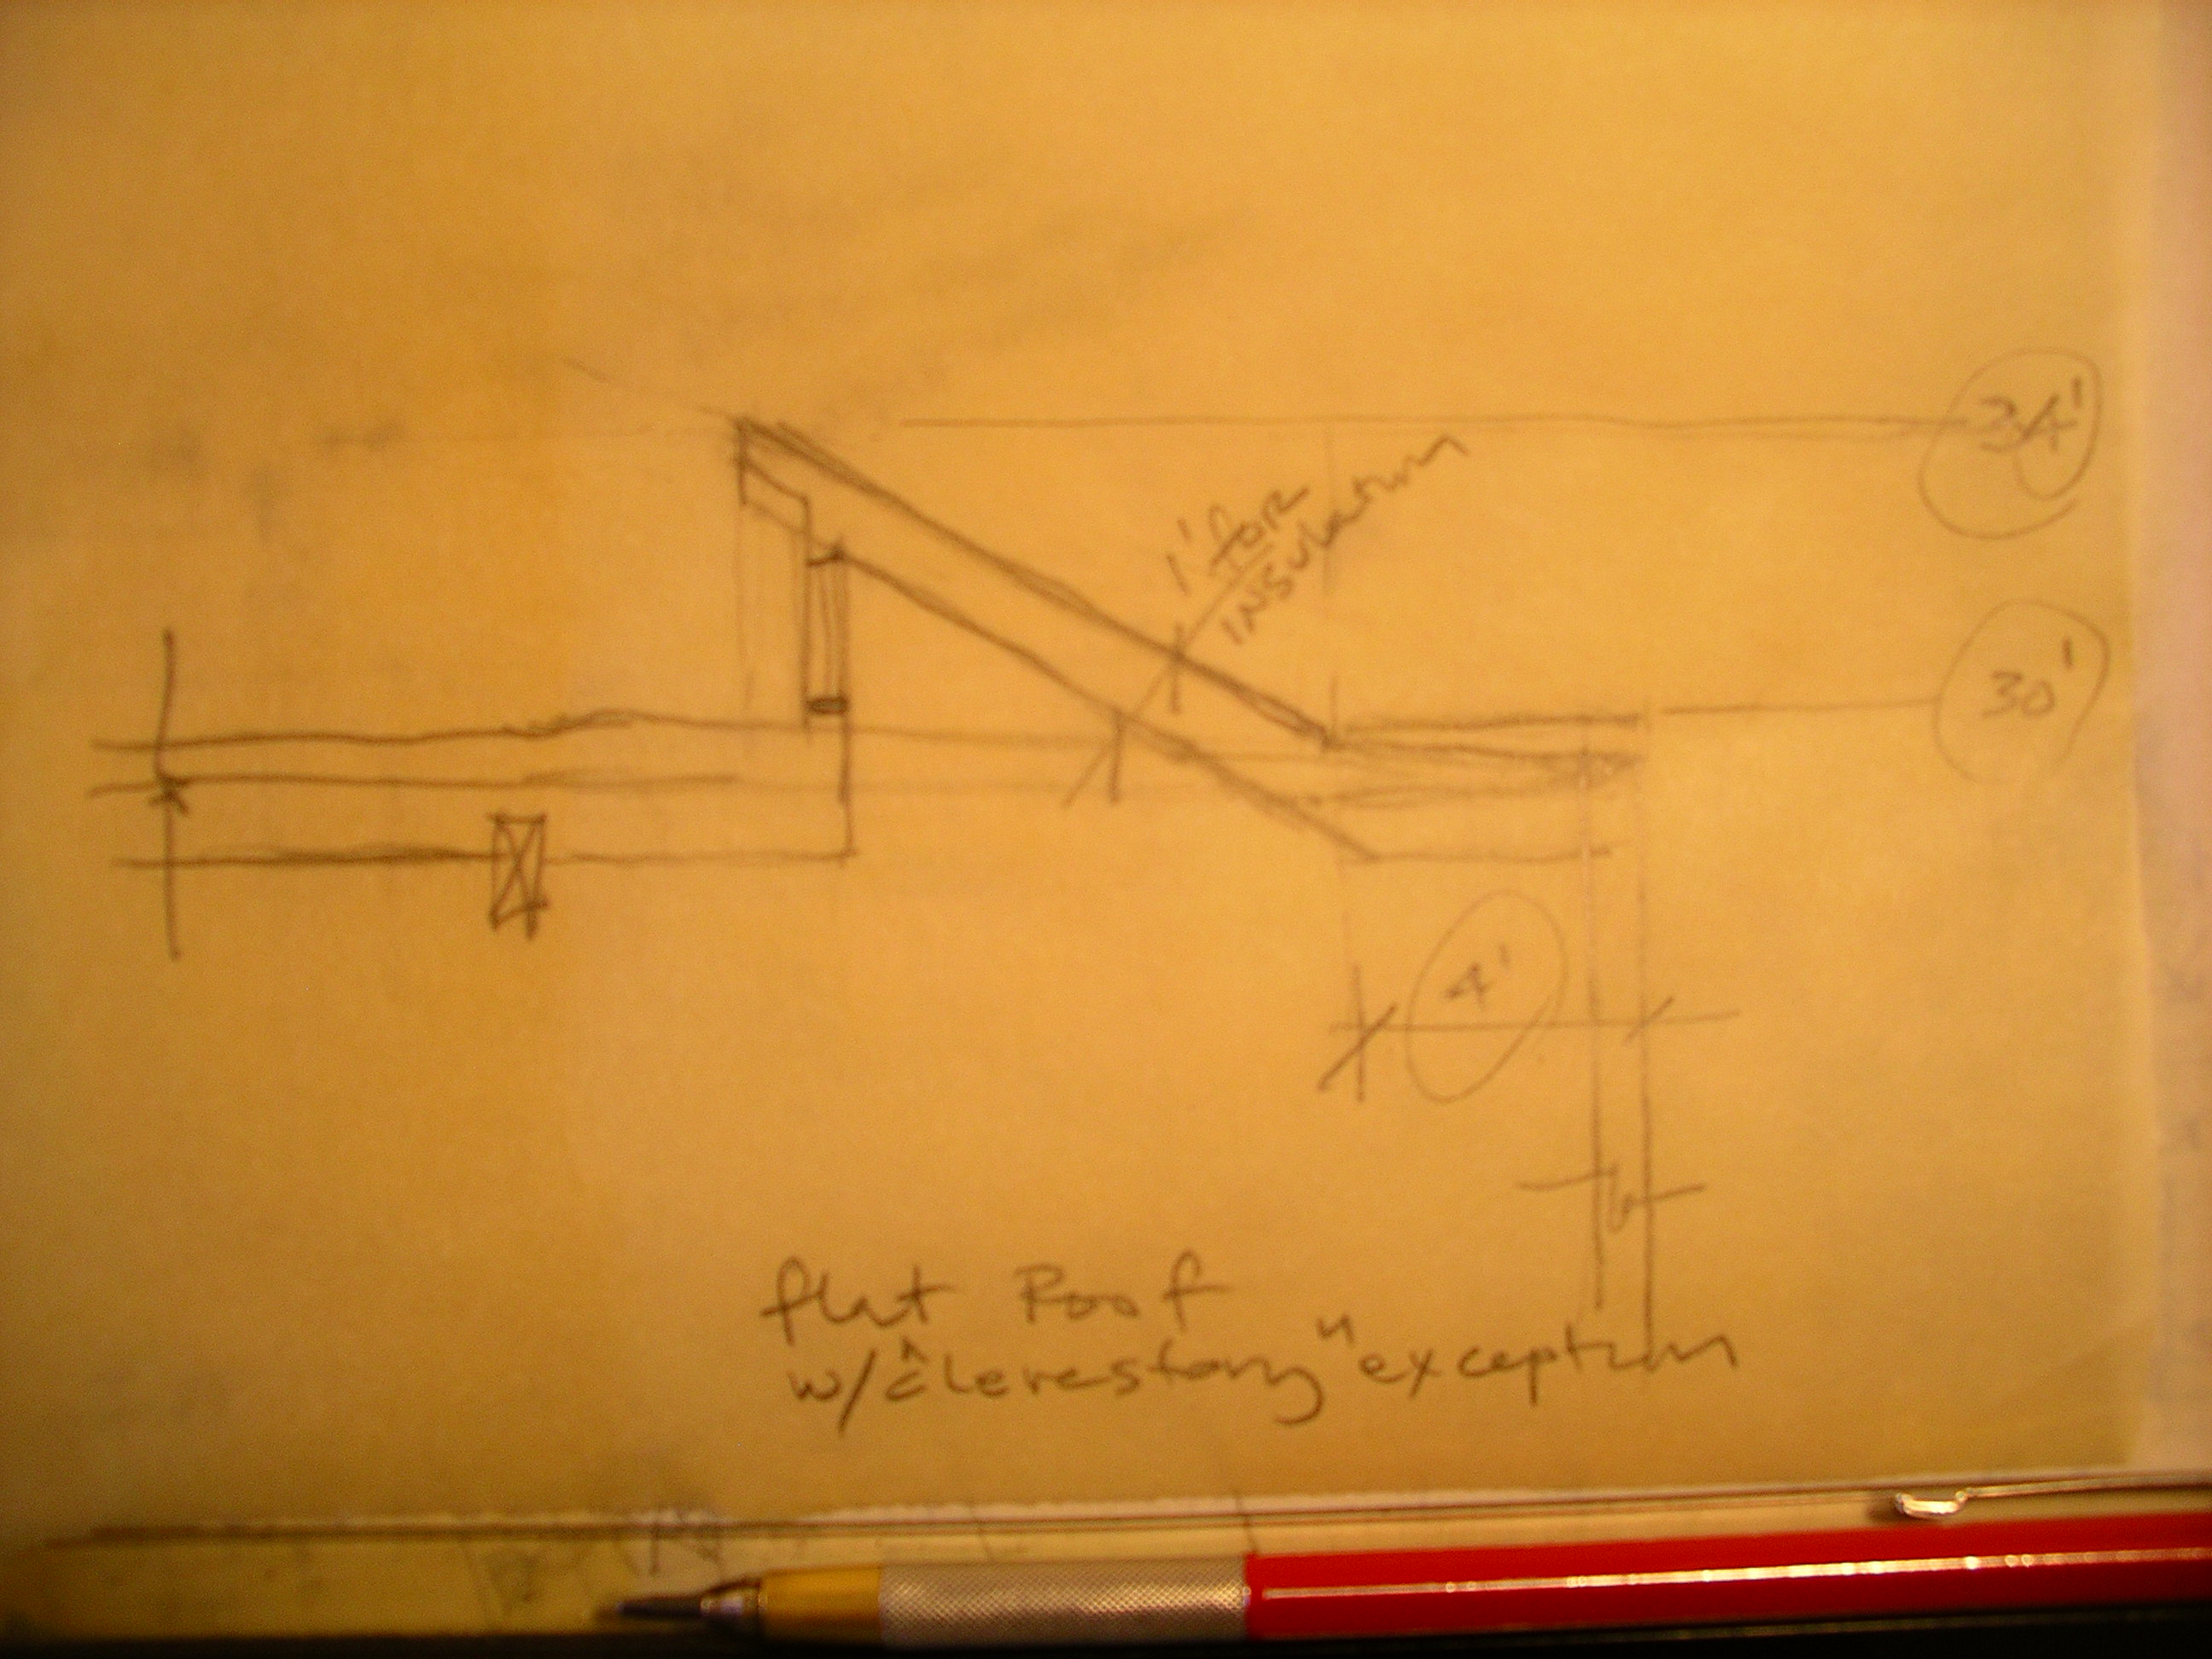 34'
1' for
INSulation
30'
4'
flat Roof
w/ "clerestory" exception